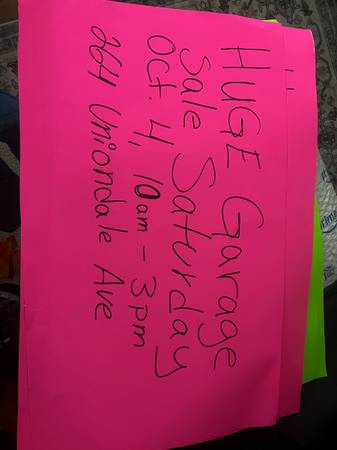 HUGE Garage
Sale Saturday
Oct. 4, 10am - 3pm
264 Uniondale Ave